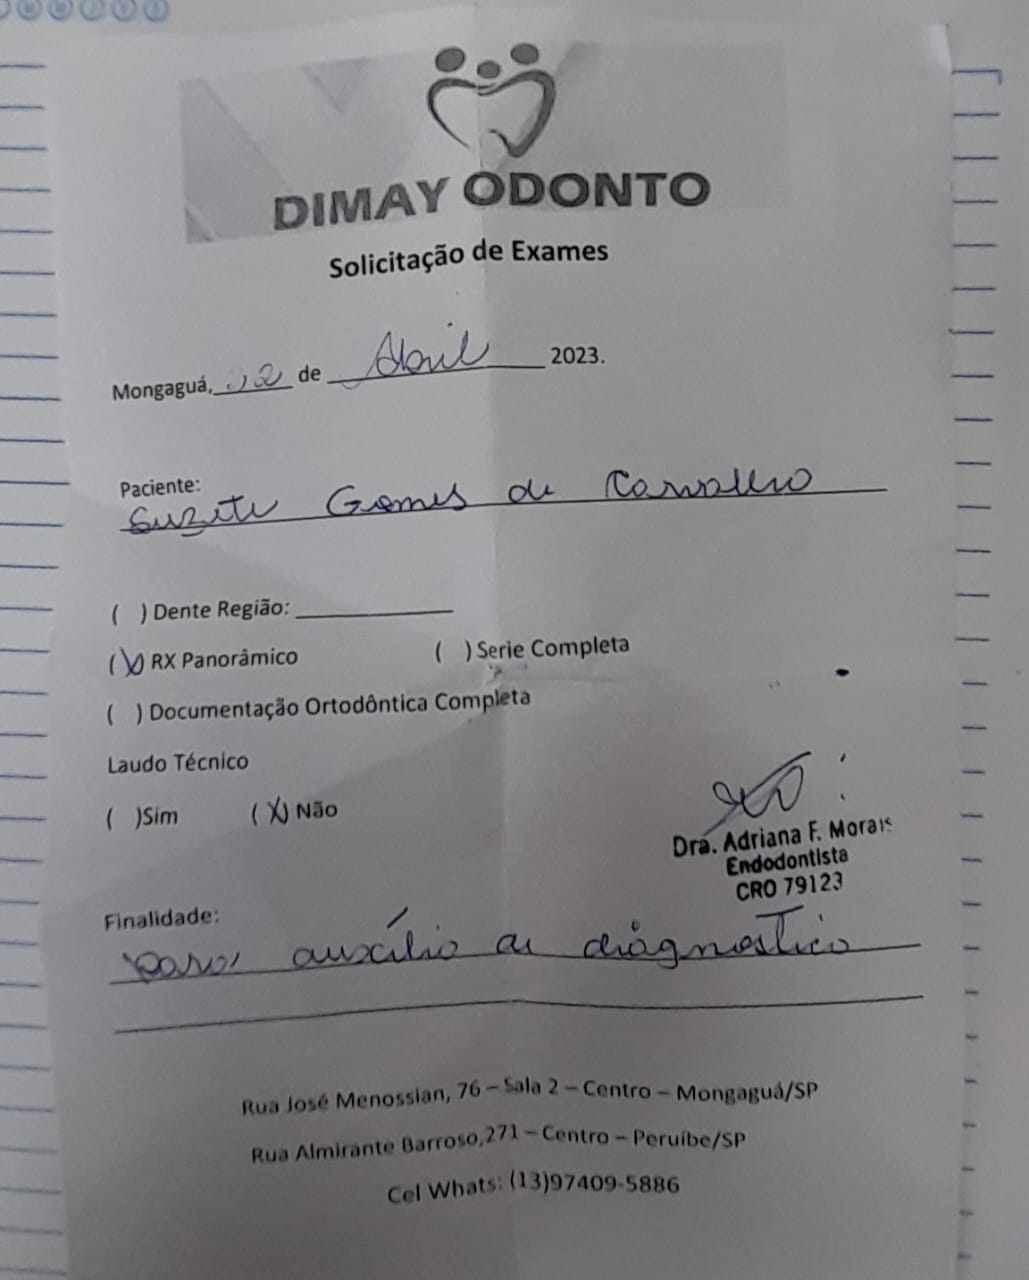 DIMAY ODONTO
Solicitação de Exames
Mongaguá, 12 de Abril 2023.
Paciente:
Suzete Gomes de Carvalho
( ) Dente Região:
(X) RX Panorâmico ( ) Serie Completa
( ) Documentação Ortodôntica Completa
Laudo Técnico
( )Sim (X) Não
Dra. Adriana F. Morais
Endodontista
CRO 79123
Finalidade:
para auxílio de diagnostico
Rua José Menossian, 76 – Sala 2 – Centro – Mongaguá/SP
Rua Almirante Barroso,271 – Centro – Peruíbe/SP
Cel Whats: (13)97409-5886